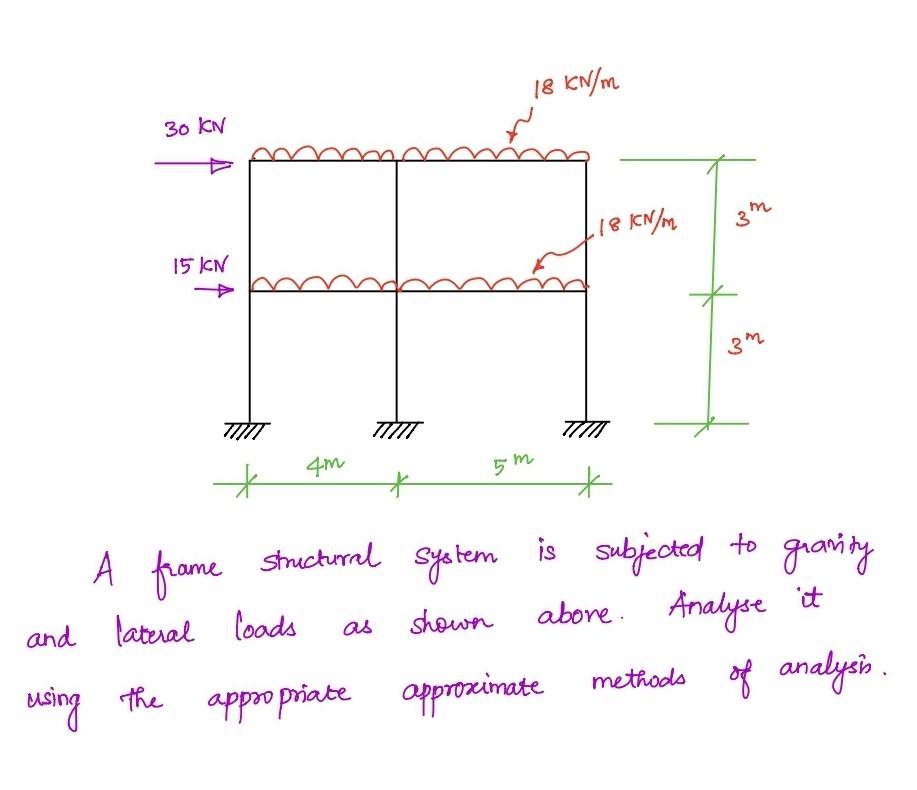 18 KN/m
30 KN
18 KN/m
3m
15 KN
3m
4m
5m
A frame structural system is subjected to gravity
and lateral loads as shown above. Analyse it
using the appropriate approximate methods of analysis.